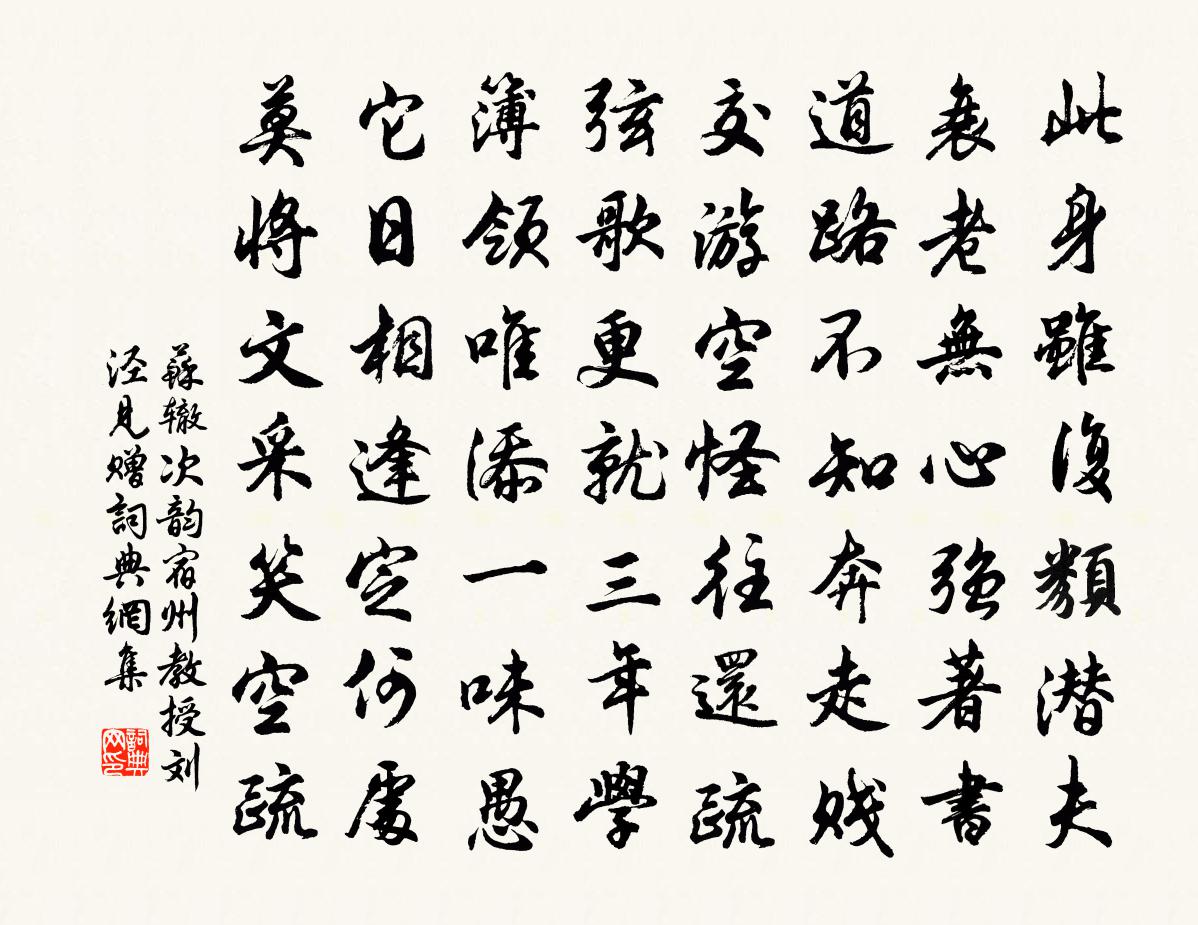 此身雖復類潜夫
衰老無心强著書
道路不知奔走賤
交游空怪往還疏
弦歌更就三年學
簿領唯添一味愚
它日相逢定何處
莫將文采笑空疏
蘇辙次韵宿州教授刘
泾見贈詞典網集
詞典网印